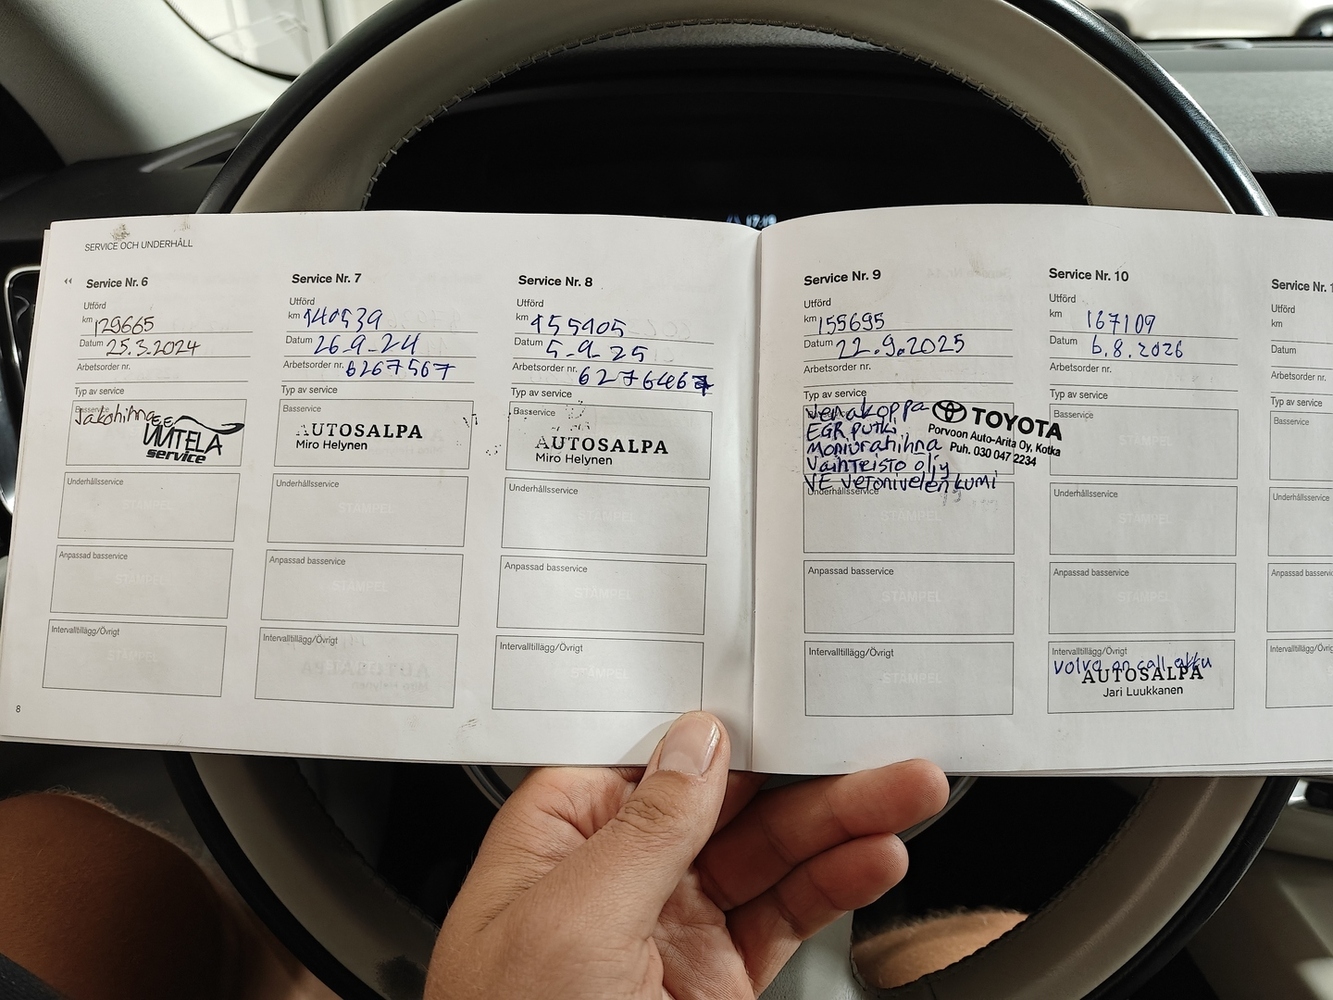 SERVICE OCH UNDERHÅLL
Service Nr. 6
Utförd
km 129665
Datum 25.3.2024
Arbetsorder nr.
Typ av service
Basservice
Jakohihna
service
Underhållsservice
STÄMPEL
Anpassad basservice
STÄMPEL
Intervalltillägg/Övrigt
STÄMPEL
8
Service Nr. 7
Utförd
km 140539
Datum 26-9-24
Arbetsorder nr. 6267567
Typ av service
Basservice
AUTOSALPA
Miro Helynen
Underhållsservice
STÄMPEL
Anpassad basservice
STÄMPEL
Intervalltillägg/Övrigt
Service Nr. 8
Utförd
km 155405
Datum 5-9-25
Arbetsorder nr. 6276467
Typ av service
Basservice
AUTOSALPA
Miro Helynen
Underhållsservice
STÄMPEL
Anpassad basservice
STÄMPEL
Intervalltillägg/Övrigt
STÄMPEL
Service Nr. 9
Utförd
km 155695
Datum 22.9.2025
Arbetsorder nr.
Typ av service
Venakoppa
EGR putki
Moniurahihna
Vaihteisto öljy
VE vetonivelen kumi
TOYOTA
Porvoon Auto-Arita Oy, Kotka
Puh. 030 047 2234
Underhållsservice
Anpassad basservice
STÄMPEL
Intervalltillägg/Övrigt
STÄMPEL
Service Nr. 10
Utförd
km 167109
Datum 6.8.2026
Arbetsorder nr.
Typ av service
Basservice
STÄMPEL
Underhållsservice
STÄMPEL
Anpassad basservice
STÄMPEL
Intervalltillägg/Övrigt
volvo on call akku
AUTOSALPA
Jari Luukkanen
Service Nr. 1
Utförd
km
Datum
Arbetsorder nr.
Typ av service
Basservice
Underhållsservice
Anpassad basservice
Intervalltillägg/Övrigt